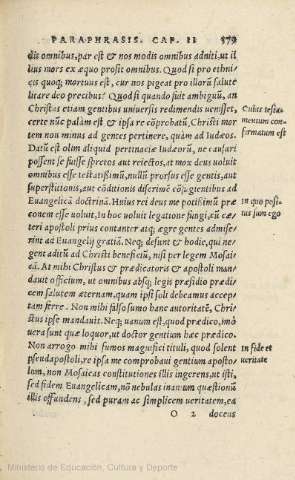 PARAPHRASIS. CAP. II 879
dis omnibus, par est & nos modis omnibus adniti, ut il
lius mors ex æquo prosit omnibus. Quod si pro ethni-
cis quoq; mortuus est, cur pigeat nos pro illorũ salute
litare deo precibus? Quod si quando fuit ambiguũ, an
Christus etiam gentibus universis redimendis venisset,
certe nũc palàm est & ipsa re cõprobatũ, Christi mor
tem non minus ad gentes pertinere, quàm ad Iudæos.
Cuius testa-
mentum con-
firmatum est
Datũ est olim aliquid pertinaciæ Iudæorũ, ne causari
possent se fuisse spretos aut reiectos, at mox deus voluit
omnibus esse testatißimũ, nulli prorsus esse gentis, aut
superstitionis, aut cõditionis discrimē cõfugiētibus ad
Euangelicã doctrinã. Huius rei deus me potißimũ præ
conem esse voluit, in hoc voluit legatione fungi, cũ cæ-
teri apostoli prius contanter atq; ægre gentes admise-
rint ad Euangelij gratiã. Neq; desunt & hodie, qui ne-
In quo posi-
tus sum ego
gent aditũ ad Christi beneficiũ, nisi per legem Mosai-
cã. At mihi Christus & prædicatoris & apostoli man-
dauit officium, ut omnibus absq; legis præsidio prædi-
cem salutem æternam, quam ipsi soli debeamus accep-
tam ferre. Non mihi falso sumo hanc autoritatē, Chri-
stus ipse mandauit. Neq; uanum est, quod prædico, imò
uera sunt quæ loquor, ut doctor gentium hæc prædico.
Non arrogo mihi fumos magnifici tituli, quod solent
In fide et
veritate
pseudapostoli, re ipsa me comprobaui gentium aposto-
lum, non Mosaicas constitutiones illis ingerens, ut isti,
sed fidem Euangelicam, nõ nebulas inanium quæstionũ
illis offundens, sed puram ac simplicem veritatem, ea
O 2 docens
Ministerio de Educación, Cultura y Deporte